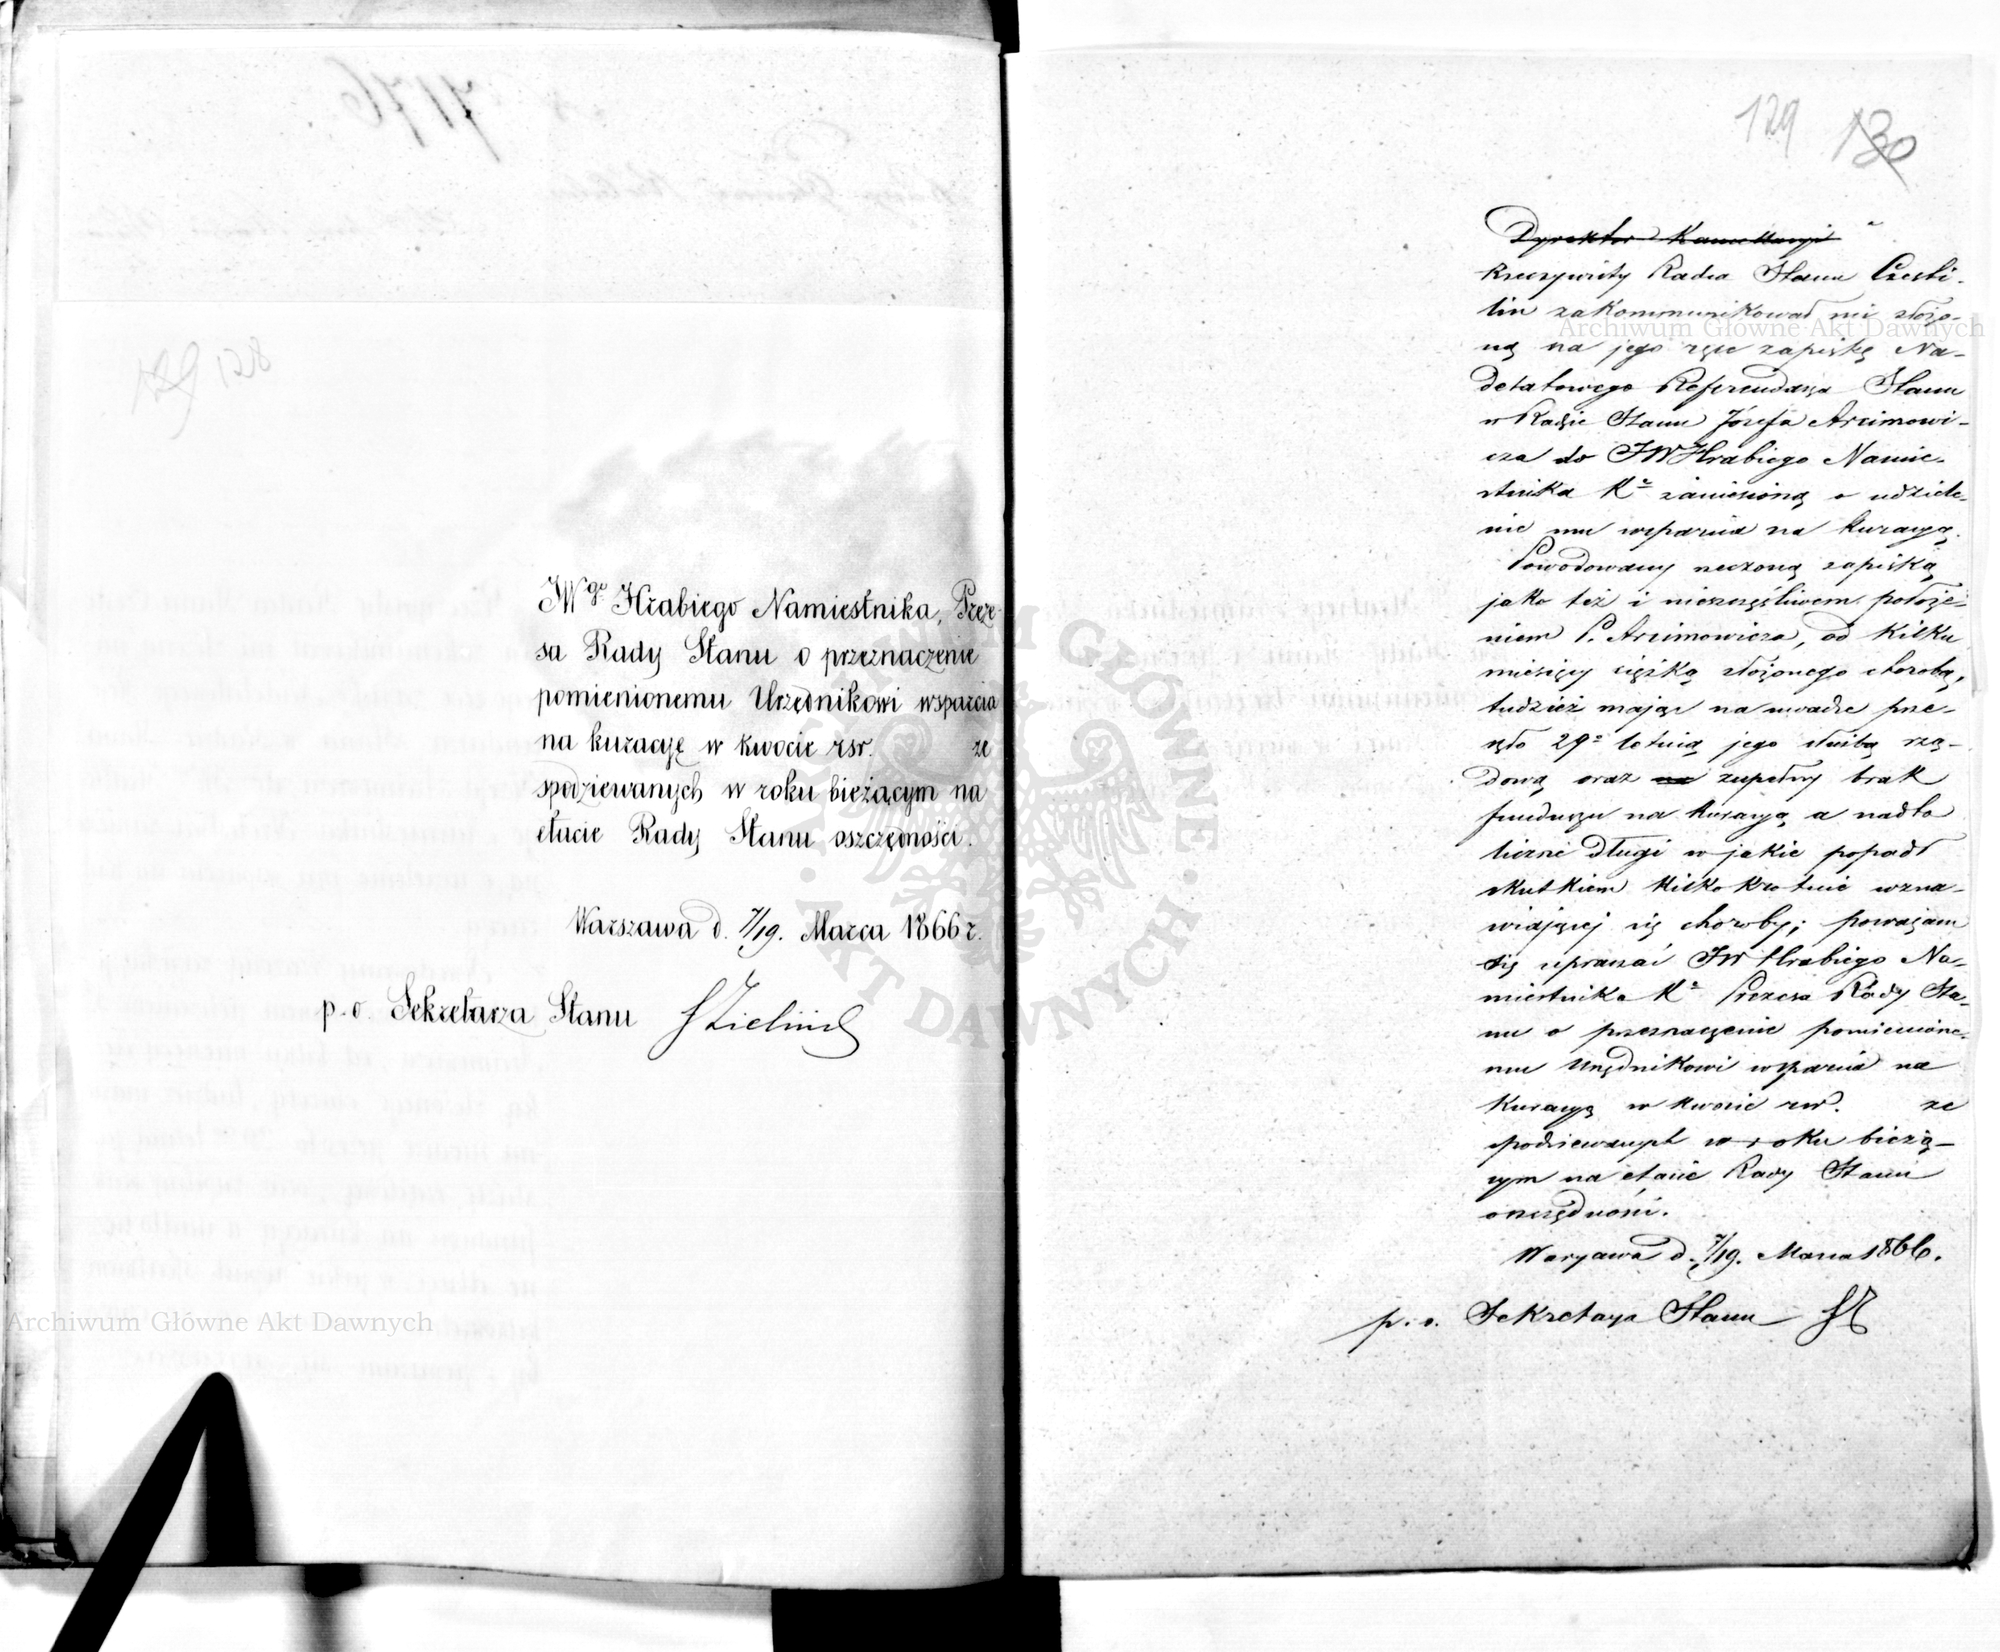 JWgo Hrabiego Namiestnika, Preze-
sa Rady Stanu o przeznaczenie
pomienionemu Urzędnikowi wsparcia
na kuracyę w kwocie rsr. ze
spodziewanych w roku bieżącym na
etacie Rady Stanu oszczędności.
Warszawa d. 7/19. Marca 1866 r.
p. o. Sekretarza Stanu
129 130
Dyrektor Kancellaryi
Rzeczywisty Radca Stanu
zakommunikował mi złożo-
ną na jego ręce zapiskę Na-
detatowego Referendarza Stanu
w Radzie Stanu Józefa Arcimowi-
cza do JW Hrabiego Namie-
stnika Kr zaniesioną o udziele-
nie mu wsparcia na kuracyą.
Powodowany rzeczoną zapiską
jako też i nieszczęśliwem położe-
niem P. Arcimowicza, od kilku
miesięcy ciężką złożonego chorobą,
tudzież mając na uwadze prze-
szło 29o letnią jego służbę rzą-
dową oraz na zupełny brak
funduszu na kuracyą a nadto
liczne długi w jakie popadł
skutkiem kilkokrotnie wzna-
wiającej się choroby; poważam
się upraszać JW Hrabiego Na-
miestnika Kr Prezesa Rady Sta-
nu o przeznaczenie pomienione-
mu Urzędnikowi wsparcia na
Kuracyą w kwocie rsr. ze
spodziewanych w roku bieżą-
cym na etacie Rady Stanu
oszczędności.
Warszawa d. 7/19. Marca 1866.
p. o. Sekretarza Stanu
Archiwum Główne Akt Dawnych
Archiwum Główne Akt Dawnych
ARCHIWUM GŁÓWNE AKT DAWNYCH